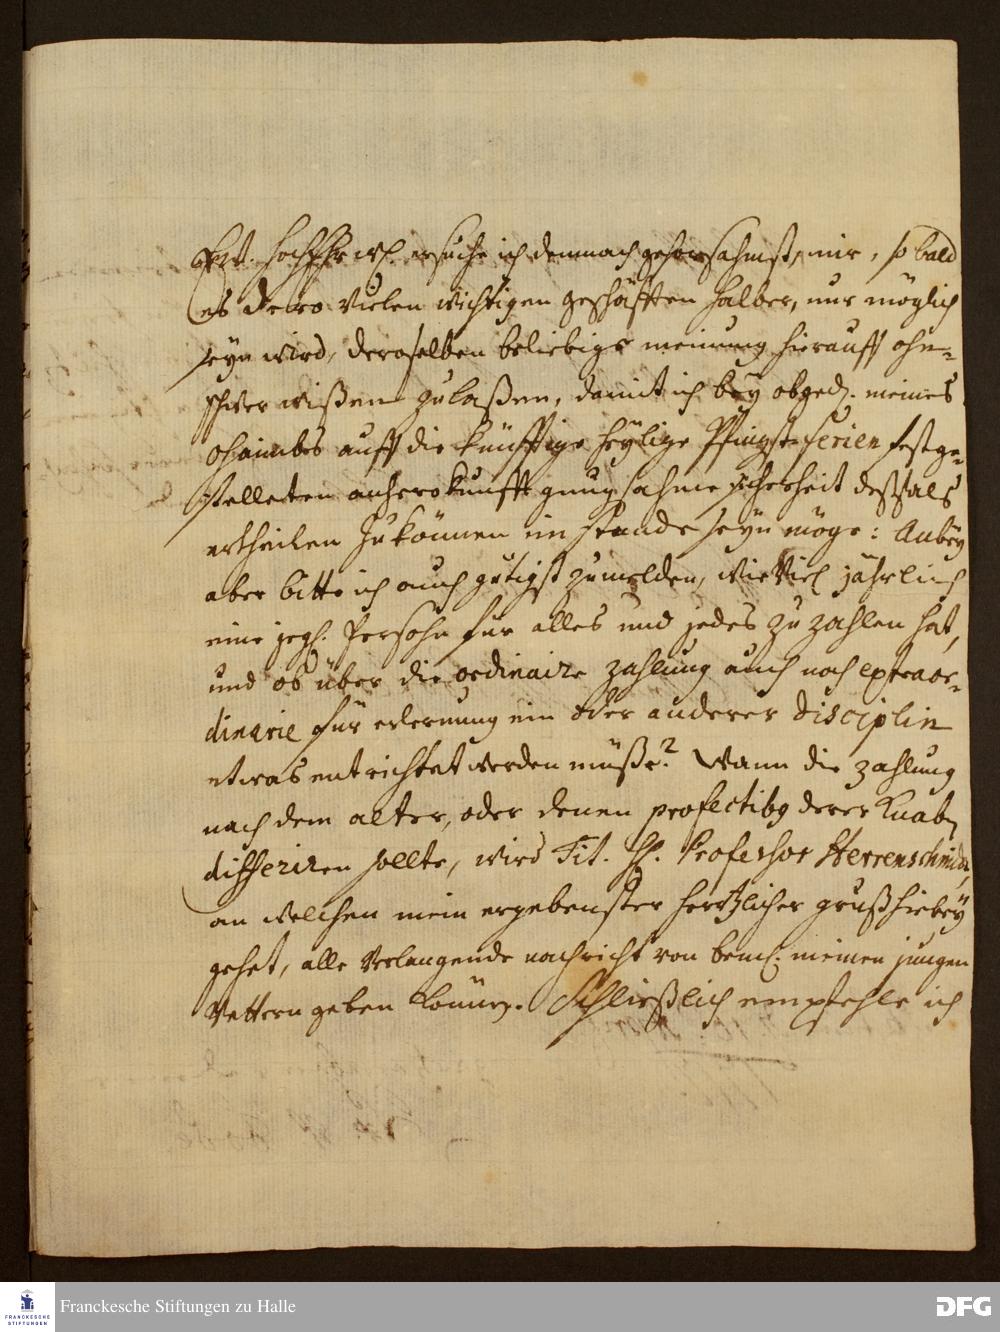 Ew. HochEhrw. ersuche ich demnach gehorsahmst, mir, so bald
es Dero vielen wichtigen geschäfften halber, nur möglich
seyn wird, deroselben beliebige meinung hierauff ohn-
schwer wißen zulaßen, damit ich bey obged. meines
auff die künfftige heylige Pfingst-ferien festge-
stelleten anherokunfft gnugsahme sicherheit deßfals
ertheilen zu können im stande seyn möge: Anbey
aber bitte ich auch gütigst zumelden, wie viel jährlich
eine jegl. Persohn für alles und jedes zu zahlen hat,
und ob über die ordinaire zahlung auch noch extraor-
dinarie für erlernung ein oder anderer disciplin
etwas entrichtet werden müße? Wann die zahlung
nach dem alter, oder denen profectibg derer Knaben
differiren sollte, wird Tit. H. Professor Herrenschmidt,
an welchen mein ergebenster hertzlicher gruß hiebey
gehet, alle verlangende nachricht von beml. meinen jungen
Vettern geben können. Schließlich empfehle ich
Franckesche Stiftungen zu Halle
FRANCKESCHE
STIFTUNGEN
DFG